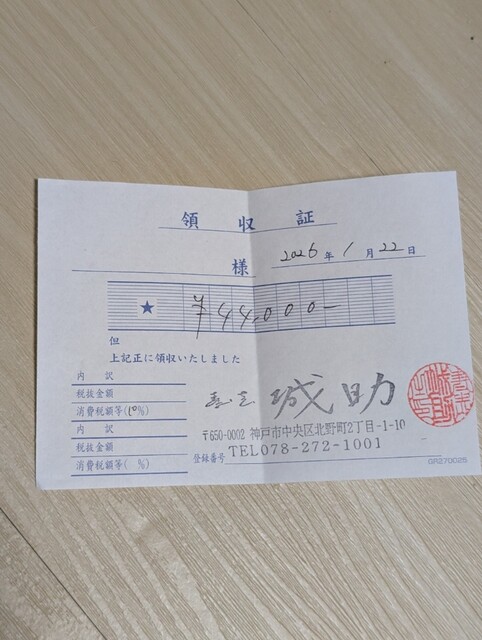 領収証
様 2026年1月22日
★ ¥44,000-
但
上記正に領収いたしました
内訳
税抜金額
消費税額等(10%)
内訳
税抜金額
消費税額等( %)
城助
〒650-0002 神戸市中央区北野町2丁目-1-10
TEL078-272-1001
登録番号
GR270025